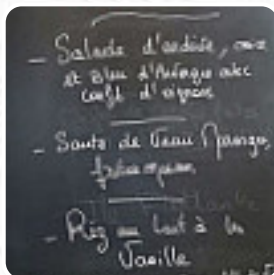 - Salade d'endive, noix
et Bleu d'Auvergne avec
confit d'oignons
- Sauté de Veau Marengo,
- Riz au Lait à la
Vanille